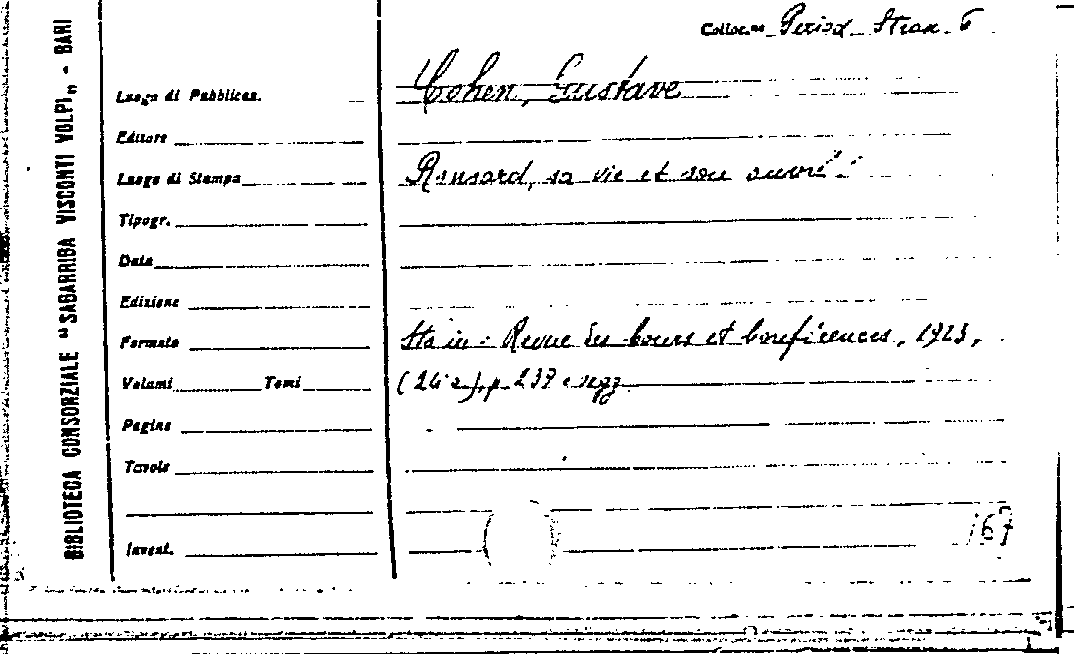 Colloc.ne Period. Stran. 6
BIBLIOTECA CONSORZIALE "SAGARRIGA VISCONTI VOLPI" - BARI
Cohen, Gustave
Luogo di Pubblicaz.
Editore
Ronsard, sa vie et son œuvre.
Luogo di Stampa
Tipogr.
Data
Edizione
Sta in: Revue des Cours et Conférences, 1923,
Formato
(24 a), p. 239 e segg
Volumi Tomi
Pagine
Tavole
167
Invent.